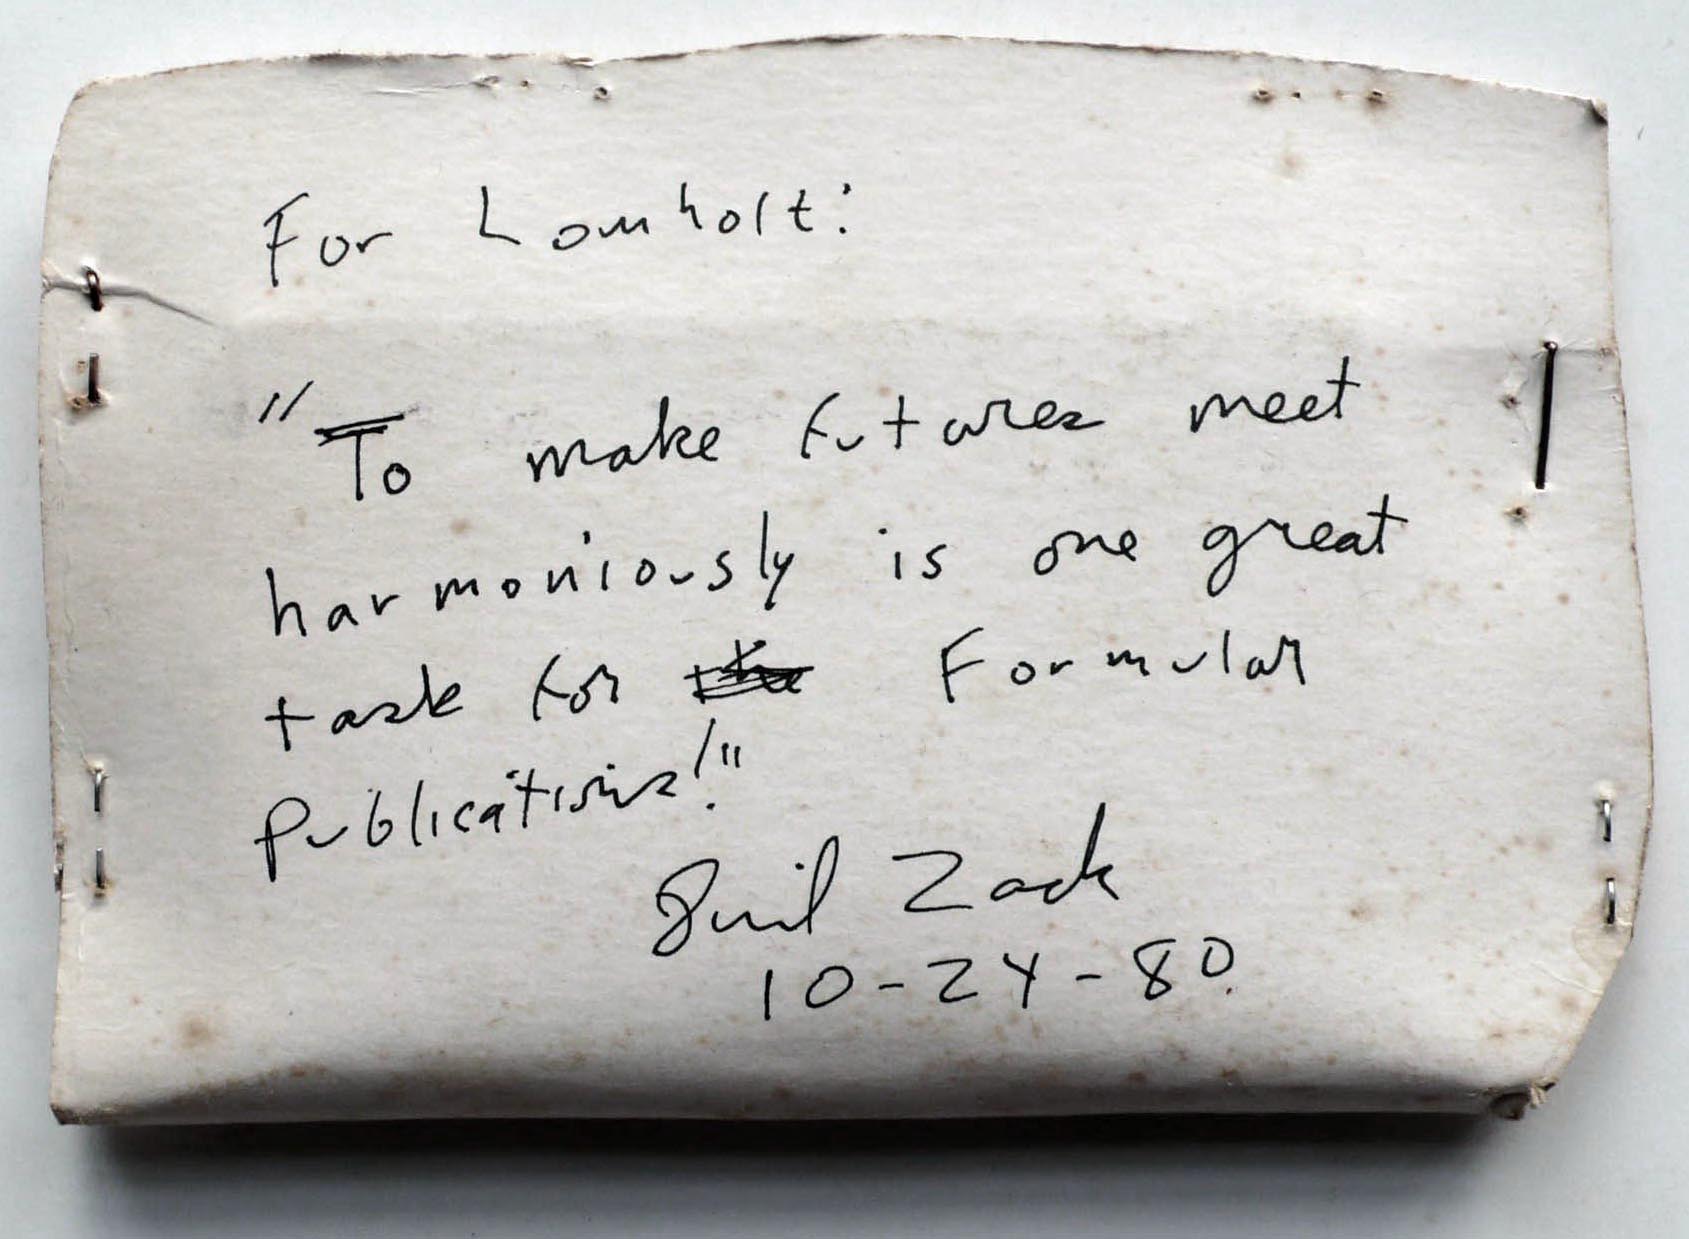 For Lomholt:
"To make futures meet
harmoniously is one great
task for Formular
Publications!"
Zack
10-24-80.